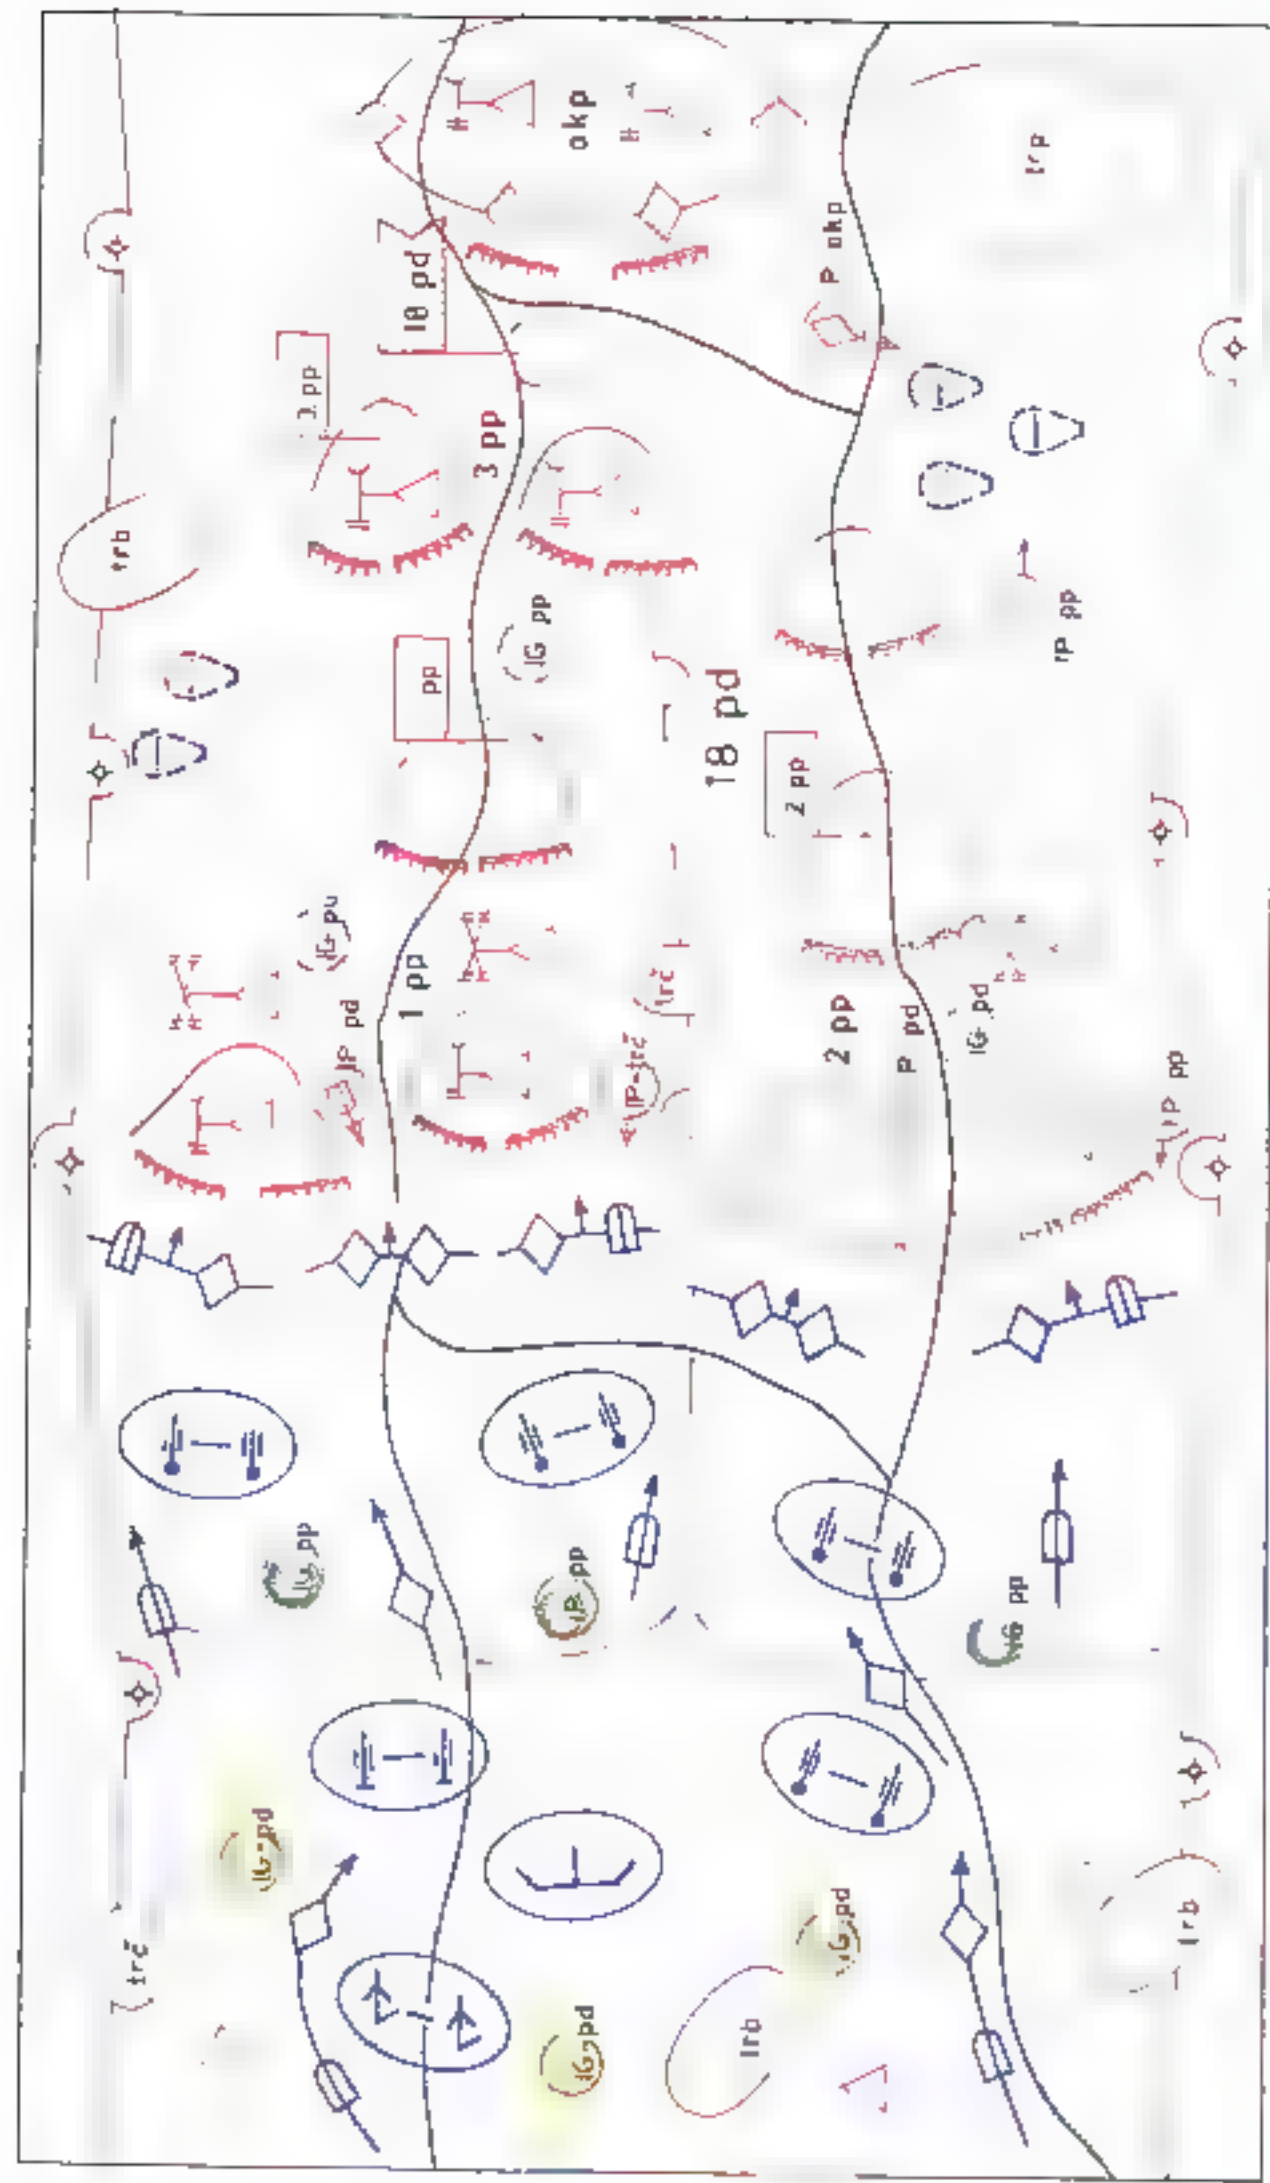 okp
trp
P okp
18 pd
3 pp
3 pp
trb
IG pp
pp
18 pd
2 pp
1 pp
trč
IP pd
IP-trč
2 pp
P pd
IG pd
IP pp
IG pp
IP pp
IG pp
IG-pd
trč
IG pd
IG pd
trb
trb